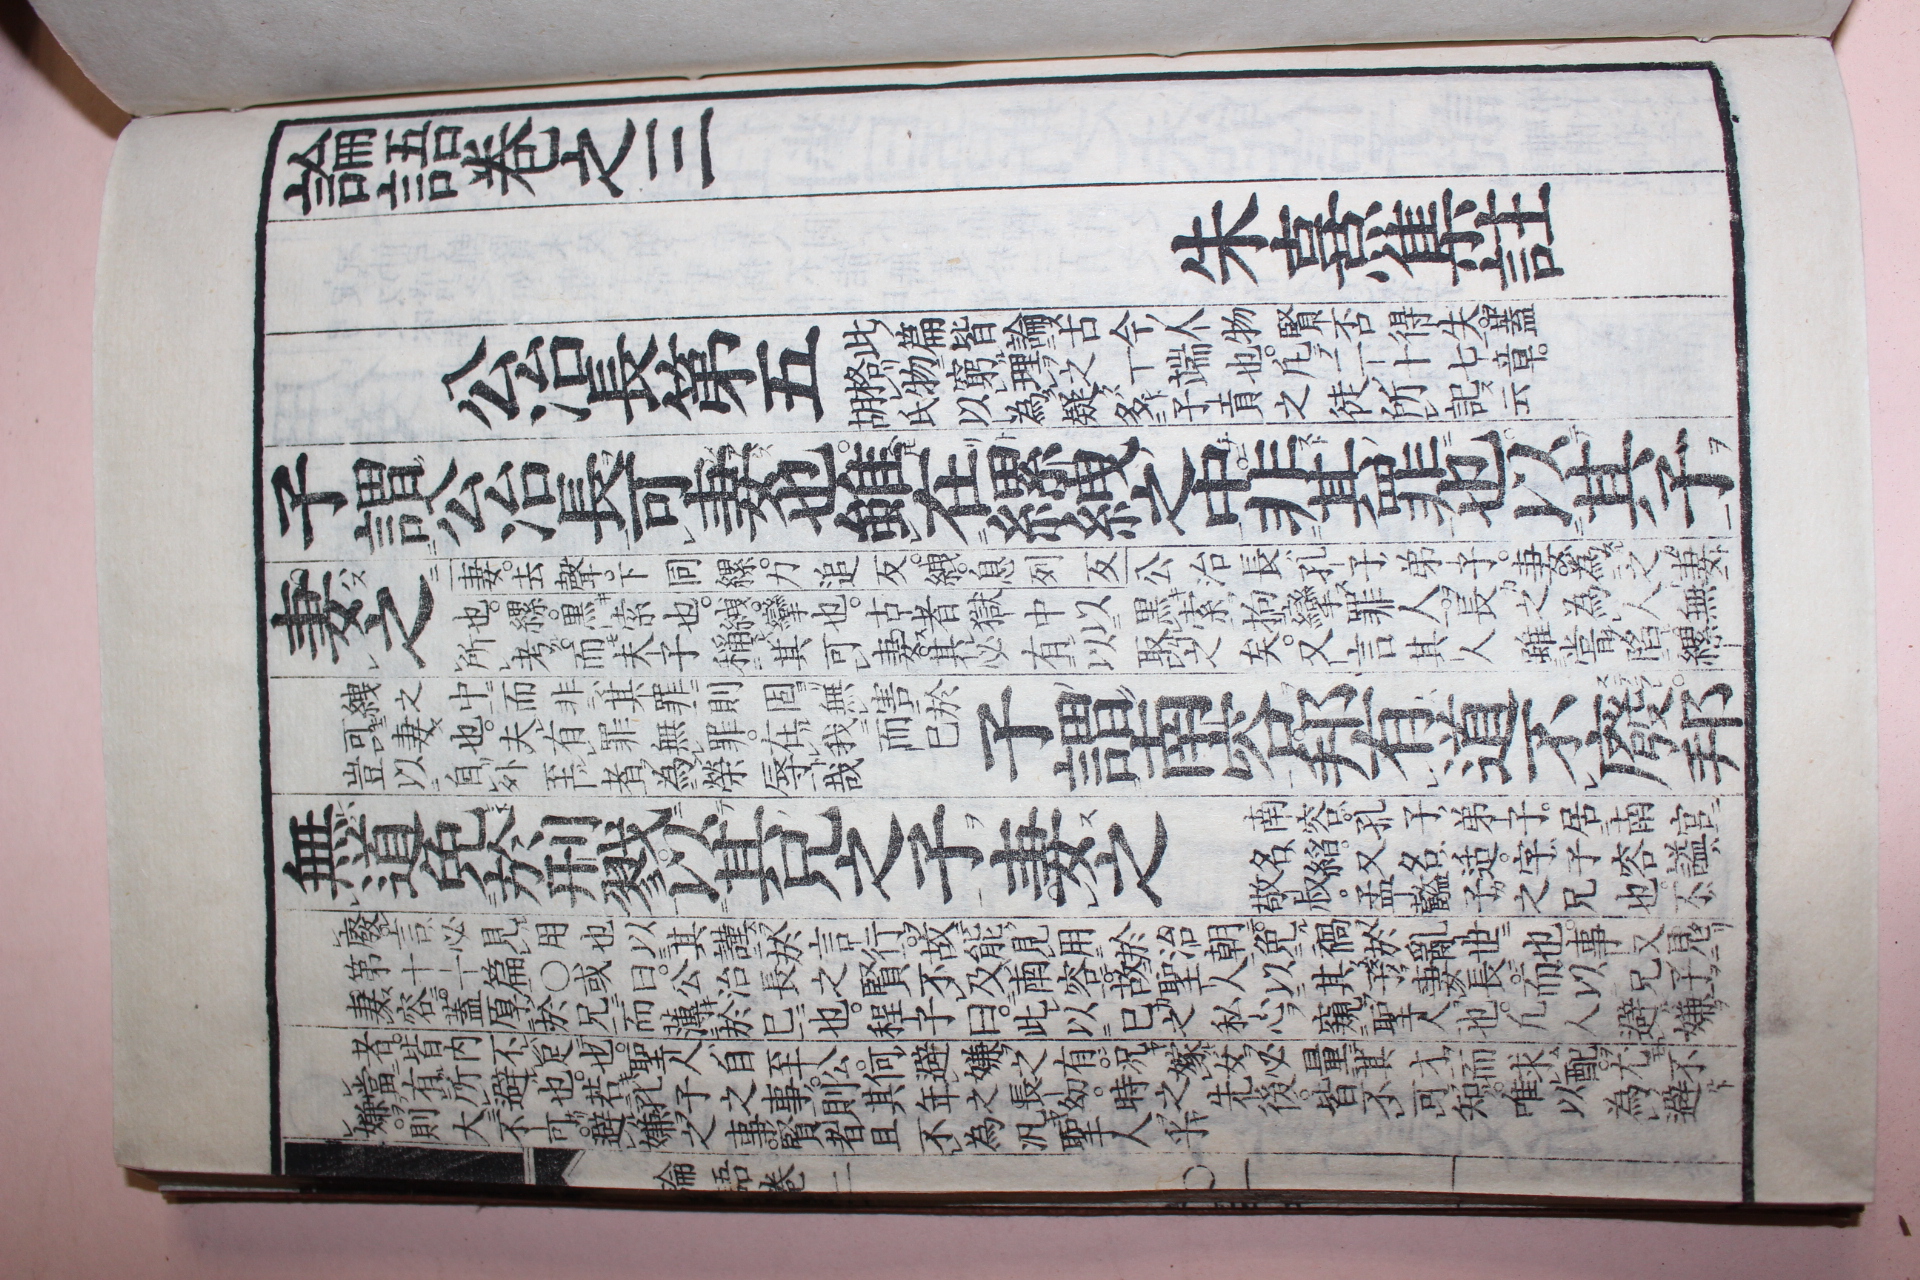 論語卷之三
朱熹集註
公冶長第五
此篇皆論古今人物賢否得失蓋
格物窮理之一端也凡二十七章。
胡氏以為疑多子貢之徒所記云
子謂公冶長可妻也雖在縲絏之中非其罪也以其子
妻之
妻去聲下同縲力追反絏息列反 公冶長孔子弟子妻為之妻
也縲黑索也絏攣也古者獄中以黑索拘攣罪人長之為人無
所考而夫子稱其可妻其必有以取之矣又言其人雖嘗陷縲
絏之中而非其罪則固無害於
可妻也夫有罪無罪在我而已
豈以自外至者為榮辱哉
子謂南容邦有道不廢邦
無道免於刑戮以其兄之子妻之
南容孔子弟子居南宮
名縚又名适字子容謚
敬叔。孟懿子之兄也不
廢言必見用也以其謹於言行故能見用於治朝免禍於亂世也事又見
第十一篇〇或曰公冶長之賢不及南容故聖人以其子妻長而以兄子
妻容蓋厚於兄而薄於己也程子曰此以己之私心窺聖人也凡人避嫌
者皆內不足也聖人自至公何避嫌之有況嫁女必量其才而求配尤不
當有所避也若孔子之事則其年之長幼。時之先後。皆不可知唯以為避
嫌則大不可避嫌之事賢者且不為況聖人乎
論語卷二
〇一